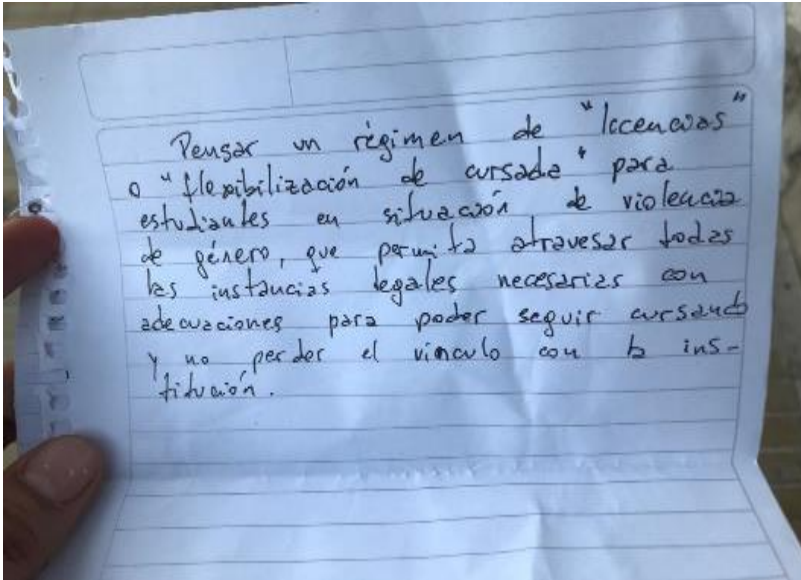 Pensar un régimen de "licencias"
o "flexibilización de cursada" para
estudiantes en situación de violencia
de género, que permita atravesar todas
las instancias legales necesarias con
adecuaciones para poder seguir cursando
y no perder el vinculo con la ins-
titución.